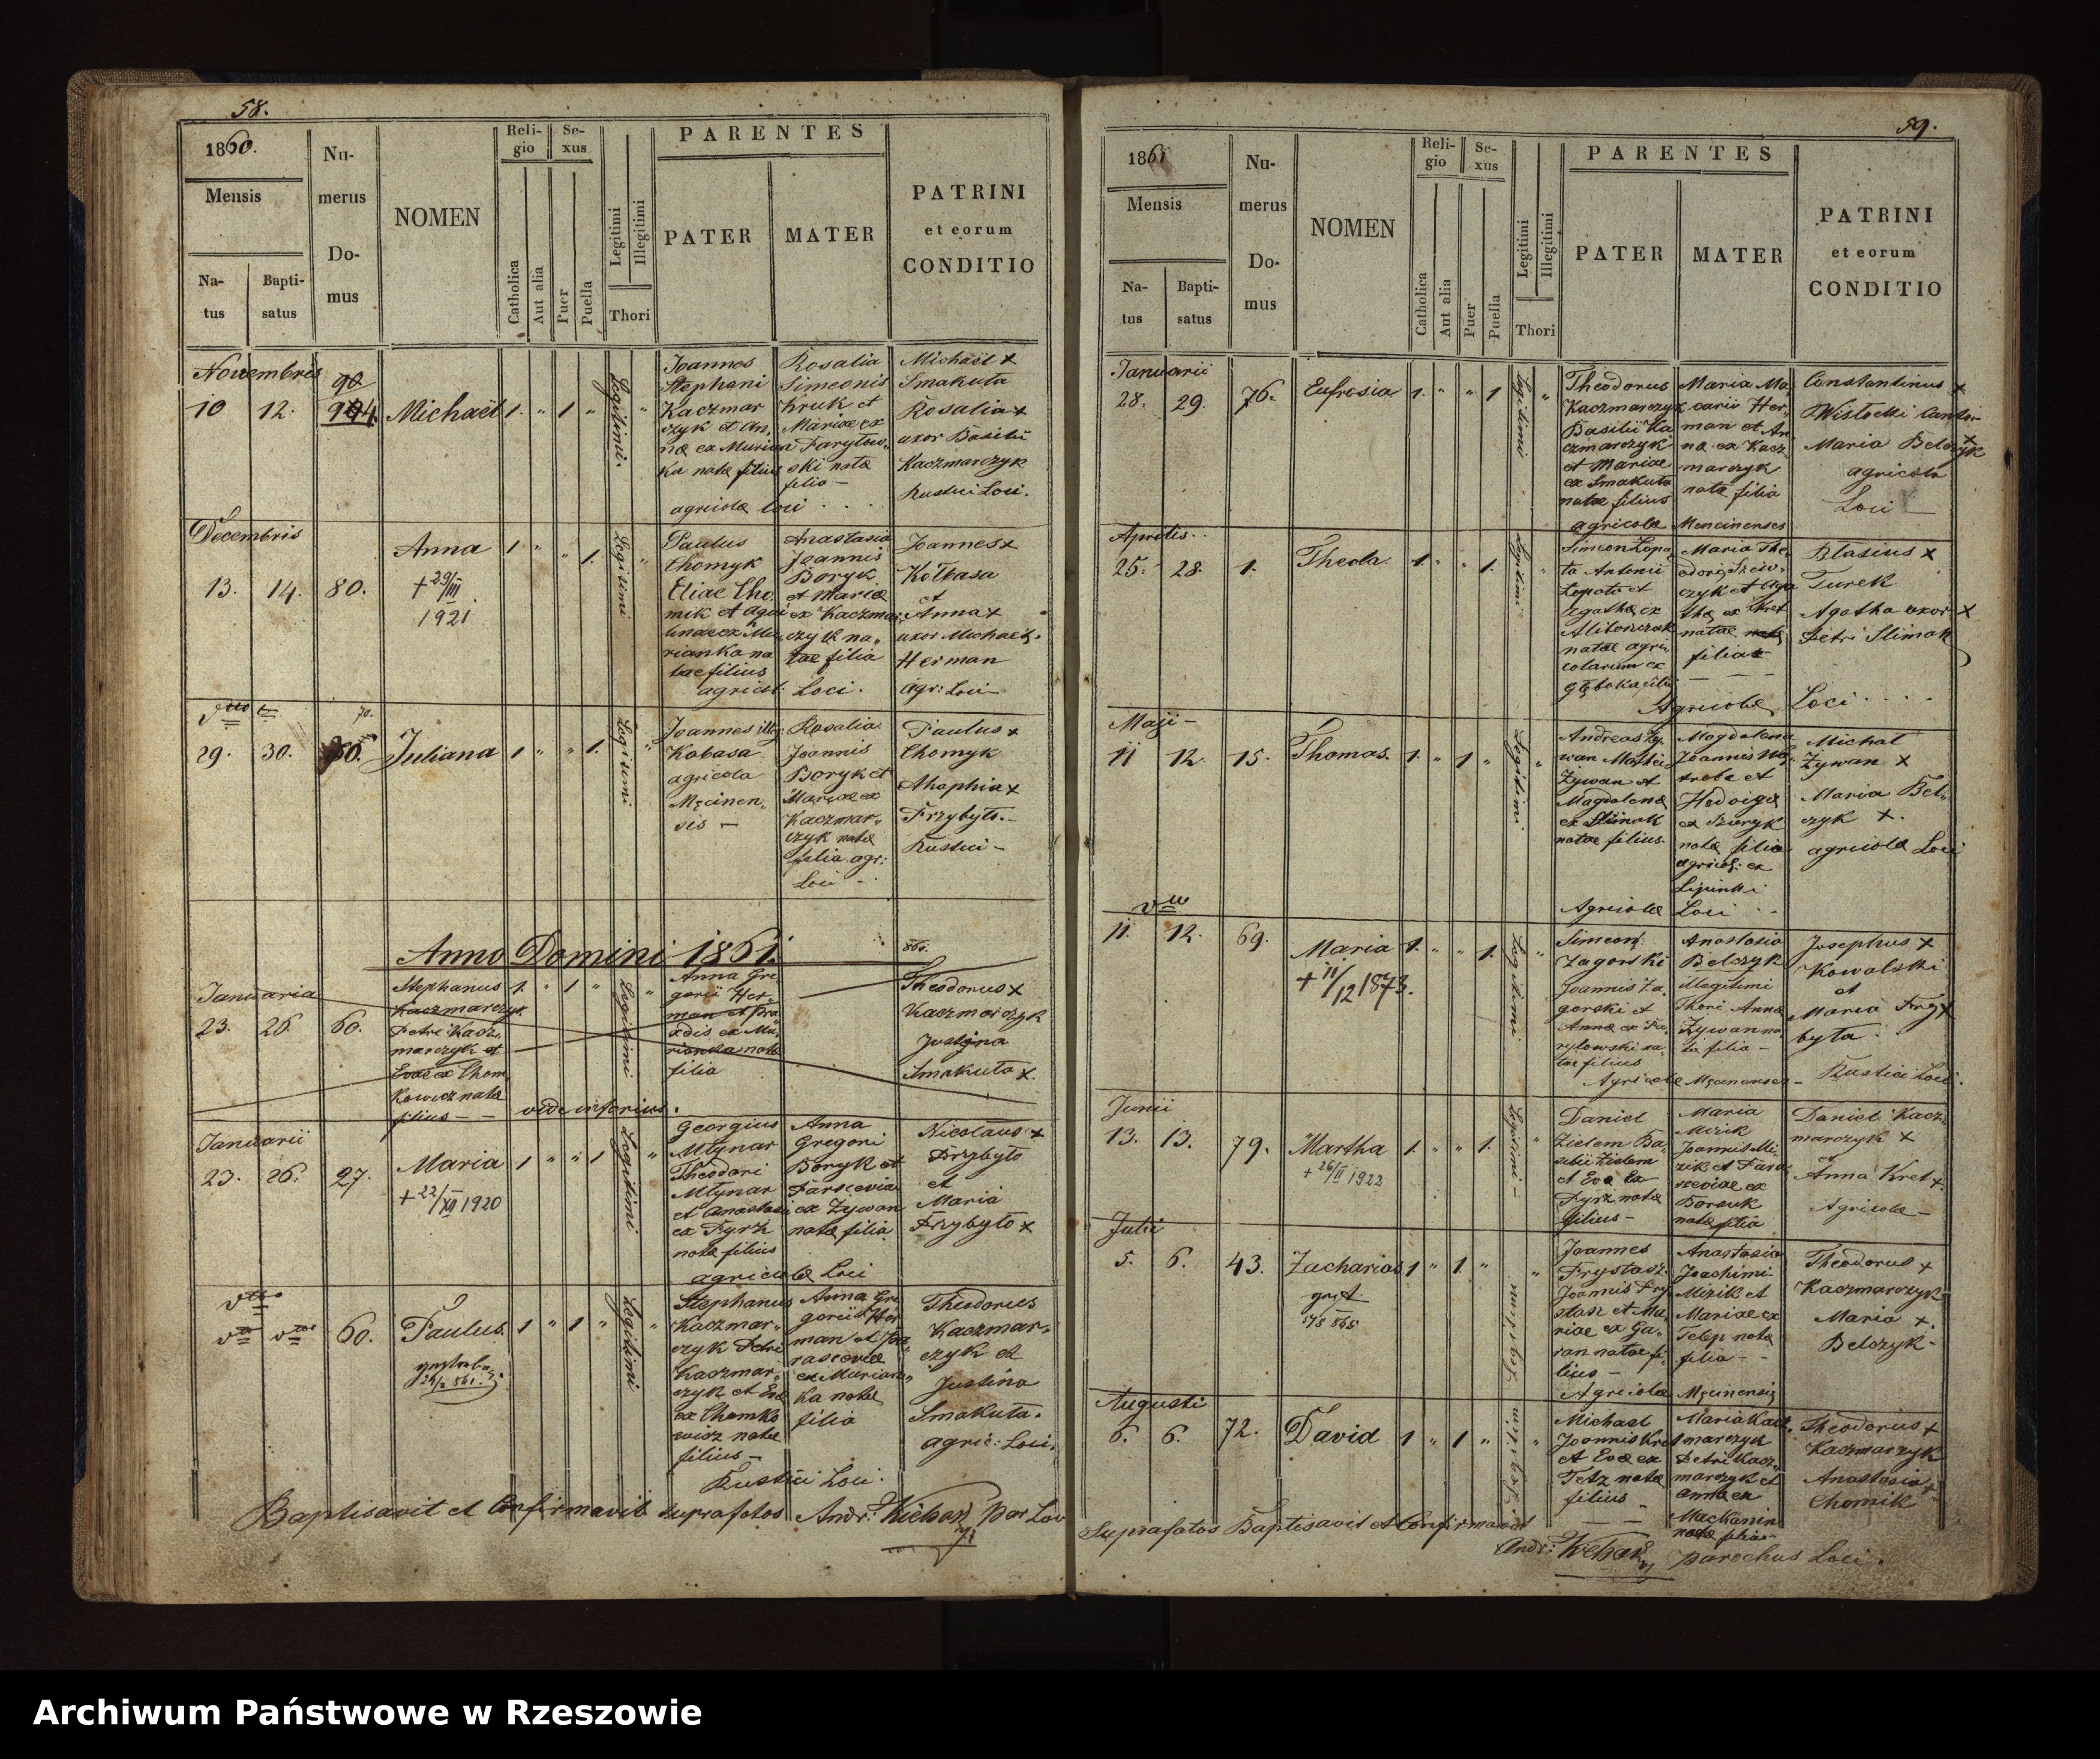 58.
1860.
Mensis
Na-
tus
Bapti-
satus
Nu-
merus
Do-
mus
NOMEN
Reli-
gio
Catholica
Aut alia
Se-
xus
Puer
Puella
Legitimi
Illegitimi
Thori
PARENTES
PATER
MATER
PATRINI
et eorum
CONDITIO
Novembris
10 12. Michael 1. " 1 " Legitimi. "
Joannes
Stephani
Kaczmar
czyk et An,
Rosalia
Simeonis
Kruk et
Mariae ex
nata
filia —
Michael +
Smakuta
Rosalia +
uxor Basilii
Kaczmarczyk
Rustici Loci.
agricolae loci
Decembris
13. 14. 80. Anna 1 " " 1. Legitimi "
+ 29/III
1921
Paulus
Chomyk
Eliae Cho,
mik et Aga
rianka na
tae filius
Anastasia
Joannis
Boryk
et Mariae
ex Kaczmar,
czyk na,,
tae filia
agricol. Loci.
Joannes +
Kołbasa
et
Anna +
uxor Michael,
Herman
agr: Loci —
29. 30. 70. Juliana 1 " " 1. Legitimi "
Joannes
Kobasa
agricola
Męcinen,
sis —
Rosalia
Joannis
Boryk et
Mariae ex
Kaczmar,,
czyk natae
filia agr:
Loci
Paulus +
Chomyk
Ahaphia +
Przybyło.
Rustici —
Anno Domini 1861.
Januaria
23. 26. 60.
Stephanus
Kaczmarczyk
Petri Kacz,
marczyk et
Evae ex Chom,
kowicz natae
filius —
1. " 1 " Legitimi "
Anna Gre
gorii Her-
man et Pra
xedis ex Mu,
rianka nata
filia
Theodorus +
Kaczmarczyk
Justyna
Smakuta +.
vide inferius.
Januarii
23. 26. 27. Maria 1 " " 1 Legitimi "
+ 22/XII 1920
Georgius
Młynar
Theodori
Młynar
et Anastasi
ex Pyrz
natae filius
Anna
Gregori
Boryk et
Parascevia
ex Żywan
natae filia
Nicolaus +
Przybyło
et
Maria
Przybyło +
agricolae Loci
60. Paulus. 1 " 1 " Legitimi "
Stephanus
Kaczmar-
czyk Petri
Kaczmar,
czyk et Evae
ex Chomko
wicz natae
filius —
Anna Gre
gorii Her
man et Pa
rasceviae
ex Murian,
ka natae
filia
Theodorus
Kaczmar,
czyk et
Justina
Smakuta.
agric: Loci.
Rustici Loci.
Baptisavit et Confirmavit suprafatos Andr: par Loc
59.
1861
Mensis
Na-
tus
Bapti-
satus
Nu-
merus
Do-
mus
NOMEN
Reli-
gio
Catholica
Aut alia
Se-
xus
Puer
Puella
Legitimi
Illegitimi
Thori
PARENTES
PATER
MATER
PATRINI
et eorum
CONDITIO
Januarii
28. 29. 76. Eufrosia 1. " " 1 Legitimi "
Theodorus
Kaczmarczyk
Basilii Ka
czmarczyk
et Mariae
ex Smakuta
natae filius
Maria Ma,
carii Her,
man et An
na ex Kacz
marczyk
nata filia
Constantinus +
Wisłocki Cantor
Maria Belczyk +
agricola
Loci
agricolae Mencinenses
Aprilis.
25. 28. 1. Thecla 1. " " 1. Legitimi "
Simeon Łopa,
ta Antonii
Łopata et
Agathae ex
natae agri
colarum ex
Maria The,
odori
czyk et Aga
thae ex Kret
natae
filia
Blasius +
Turek
Agatha uxor +
Petri Slimak
Agricolae Loci
Maji —
11 12. 15. Thomas. 1. " 1 " Legitimi "
Andreas Ży,
wan
Żywan et
Magdalenae
ex Slimak
natae filius.
Magdalena
Joannis
et
Hedvigae
natae filia
agricol: ex
Lipinki
Michał
Żywan +
Maria Bel,
czyk +.
agricolae Loci
Agricolae Loci
11. 12. 69. Maria 1. " " 1. Legitimi "
+ 11/12 1873.
Simeon
Zagorski
Joannis Za,
gorski et
Annae ex Pa,
ryłowski na,
tae filius
Anastasia
Belczyk
Illegitimi
Thori Annae
Żywan na
ta filia —
Josephus +
Kowalski
et
Maria Przy +
była
Agricolae Męcinenses — Rustici Loci.
Junii
13. 13. 79. Martha 1. " " 1. Legitimi — "
+ 26/II 1922
Daniel
Zielem Ba,
silii Zielem
et Eva Ex
Pyrz natae
filius —
Maria
Mizik
Joannis Mi,
zik et Para
sceviae ex
natae filia
Daniel Kacz,
marczyk +
et
Anna Kret +.
Agricola —
Julii
5. 6. 43. Zacharias 1 " 1. " Legitimi "
Joannes
Frystasz
Joannis Fry
stasz et Ma,
riae ex Ga,
ran natae fi,
lius —
Anastasia
Joachimi
Mizik et
Mariae ex
Telep nata
filia —
Theodorus +
Kaczmarczyk
Maria +.
Belczyk —
Agricolae Męcinensis
Augusti
6. 6. 72. David 1 " 1 " Legitimi "
Michael
Joannis Kret
et Evae ex
natae
filius —
Maria Kacz
marczyk
Petri Kacz,
marczyk et
Anna ex
natae filia —
Theodorus +
Kaczmarczyk
Anastasia +
Chomik
Suprafatos Baptisavit et Confirmavit
Andr: parochus Loci.
Archiwum Państwowe w Rzeszowie